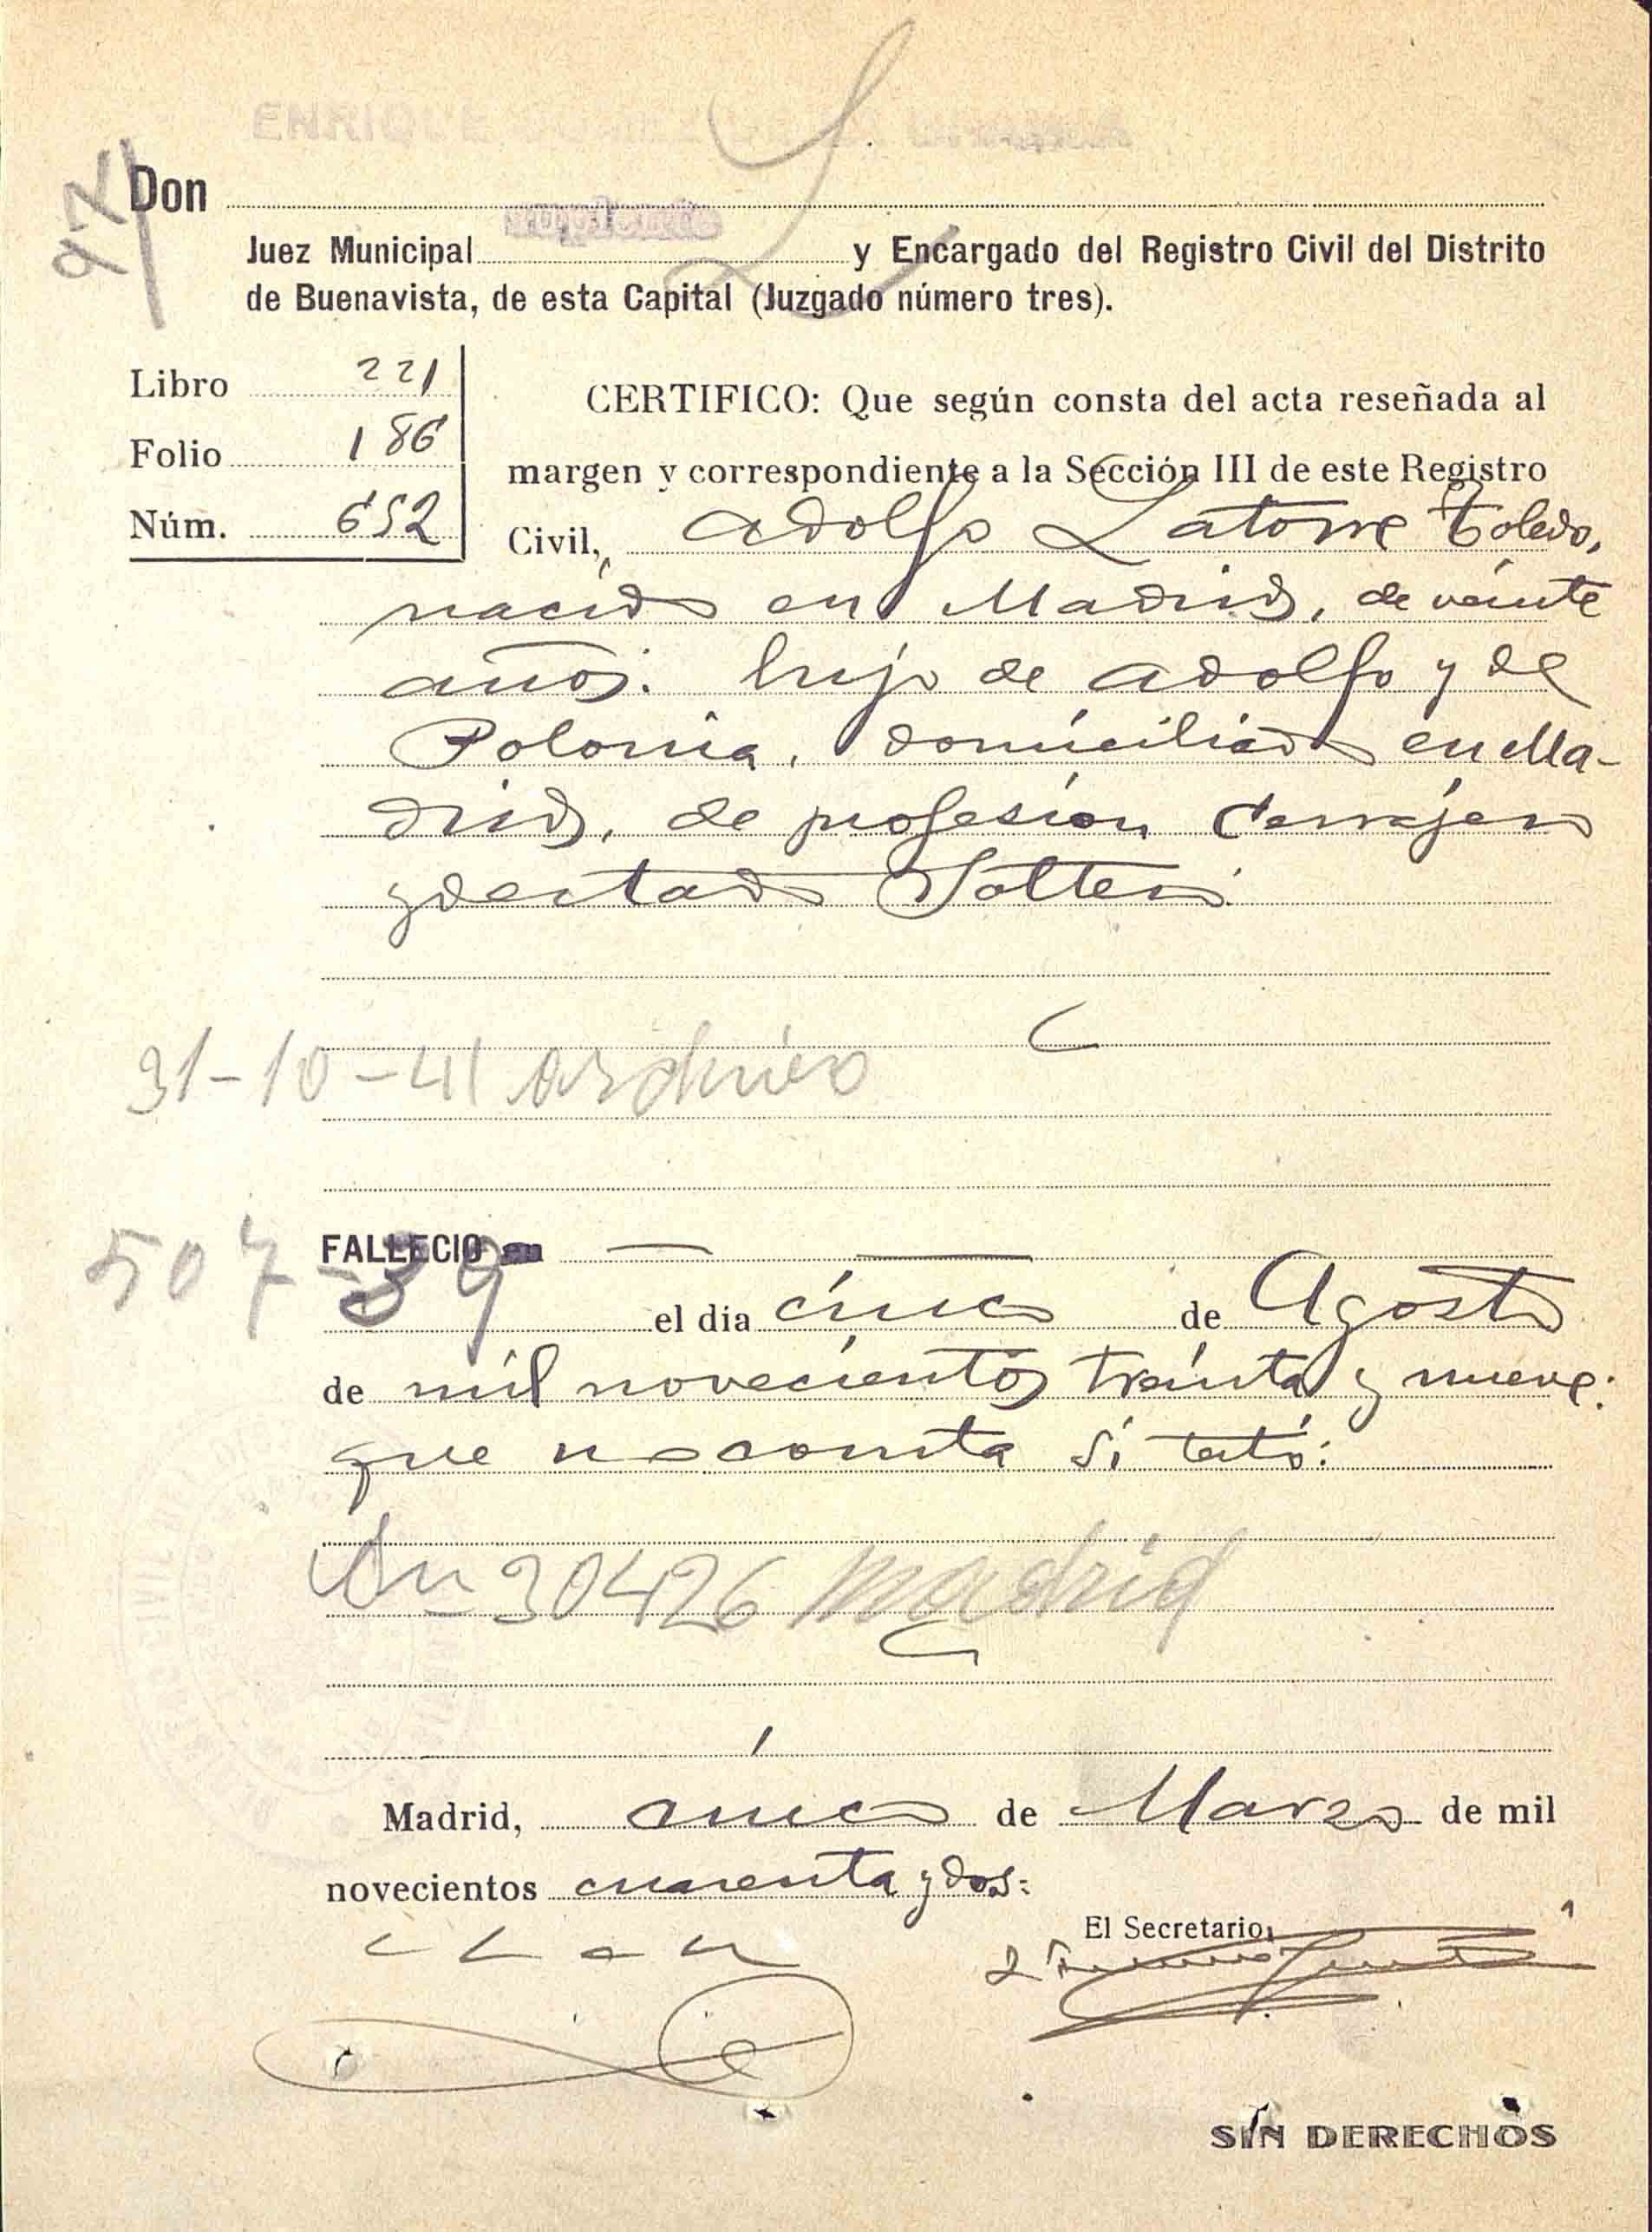 ENRIQUE
97
Don
suplente
Juez Municipal y Encargado del Registro Civil del Distrito
de Buenavista, de esta Capital (Juzgado número tres).
Libro 221
Folio 186
Núm. 652
CERTIFICO: Que según consta del acta reseñada al
margen y correspondiente a la Sección III de este Registro
Civil, Adolfo Latorre Toledo,
nacido en Madrid, de veinte
años. hijo de Adolfo y de
Polonia, domiciliado en Ma-
drid, de profesión Cerrajero
y de estado Soltero
31-10-41 archivo
FALLECIO en
507-39
el dia cinco de Agosto
de mil novecientos treinta y nueve:
que no consta si testó:
30426 Madrid
Madrid, cinco de Marzo de mil
novecientos cuarenta y dos:
El Secretario,
SIN DERECHOS